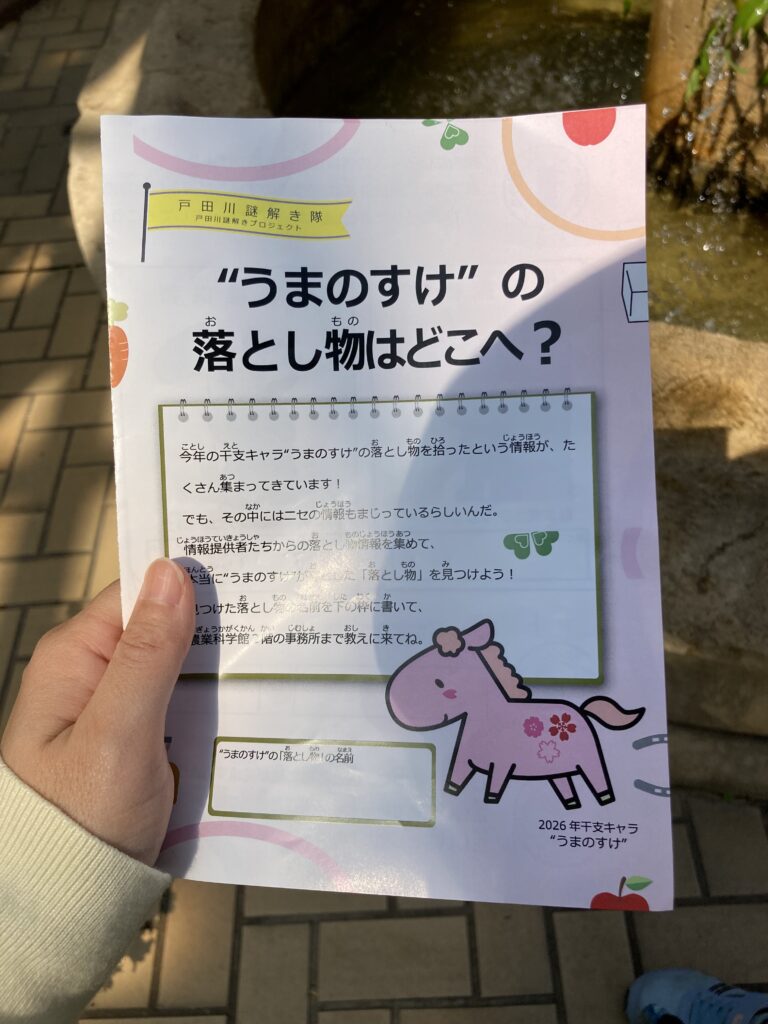 戸田川謎解き隊
戸田川謎解きプロジェクト
“うまのすけ”の
落とし物はどこへ？
今年の干支キャラ“うまのすけ”の落とし物を拾ったという情報が、た
くさん集まってきています！
でも、その中にはニセの情報もまじっているらしいんだ。
情報提供者たちからの落とし物情報を集めて、
本当に“うまのすけ”が とした「落とし物」を見つけよう！
見つけた落とし物の名前を下の枠に書いて、
農業科学館2階の事務所まで教えに来てね。
“うまのすけ”の「落とし物」の名前
2026年干支キャラ
“うまのすけ”